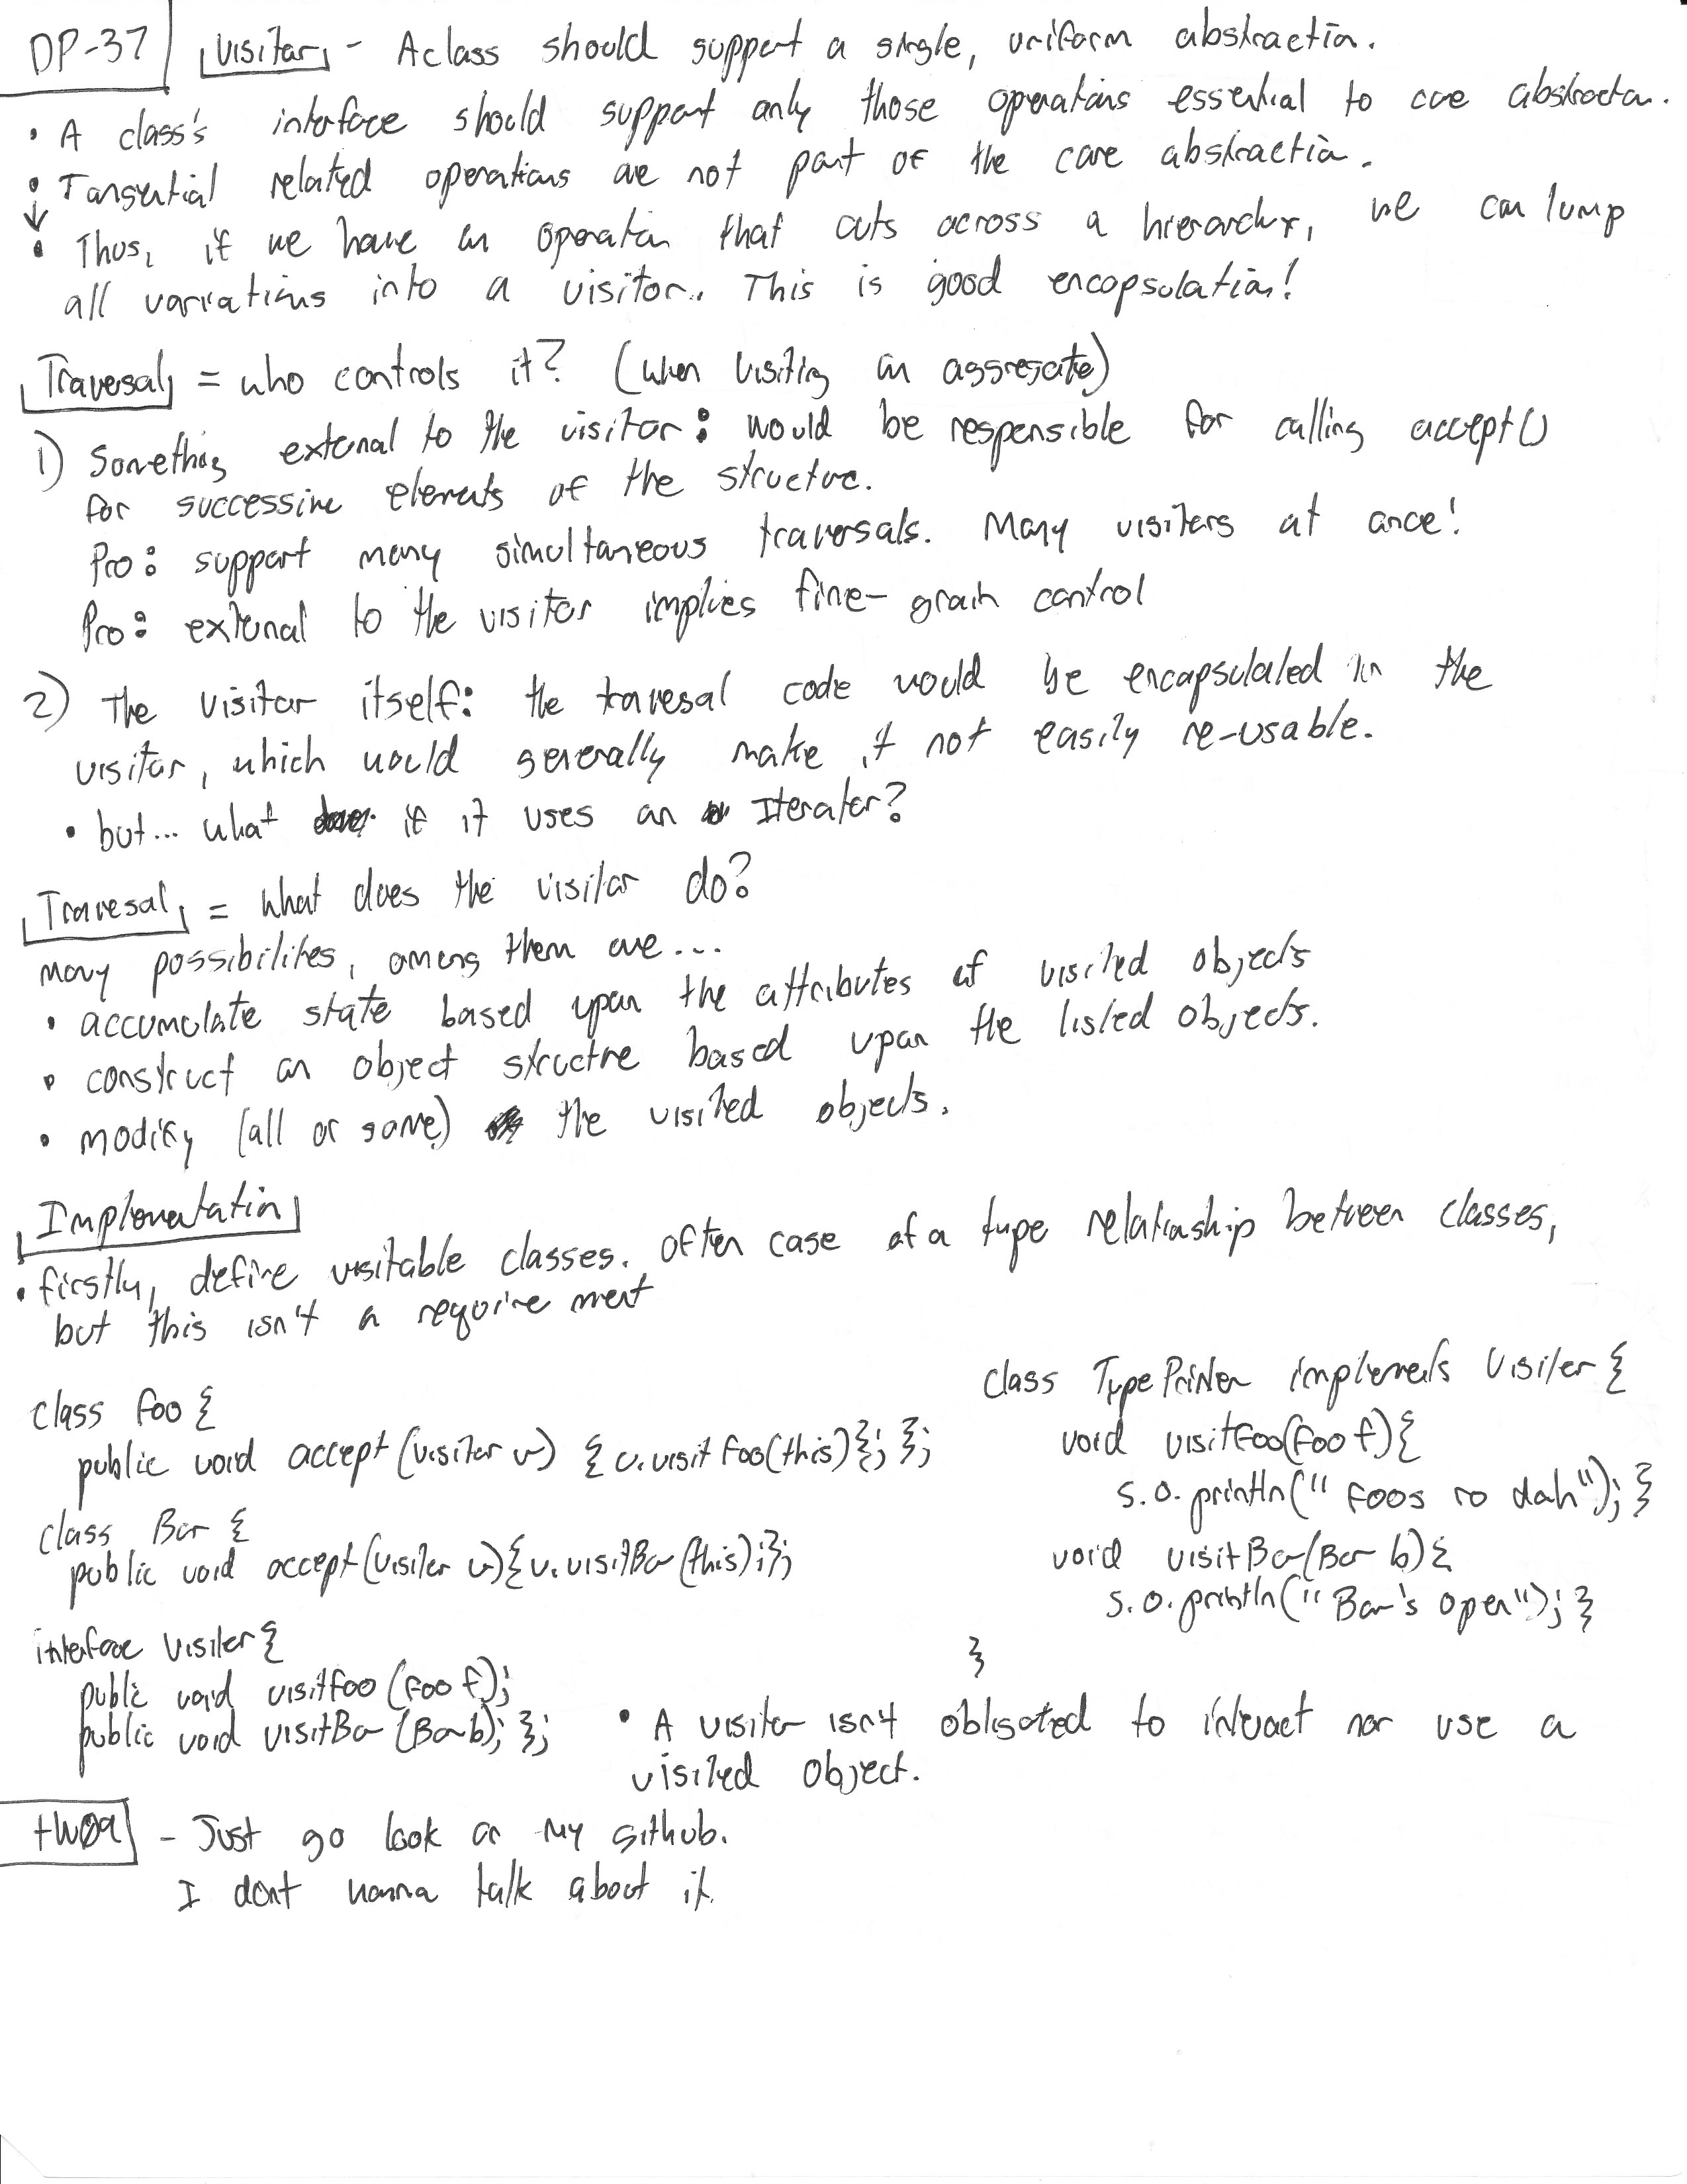 DP-37 Visitor - A class should support a single, uniform abstraction.
• A class's interface should support only those operations essential to core abstraction.
• Tangential related operations are not part of the core abstraction.
↓
• Thus, if we have an operation that cuts across a hierarchy, we can lump
all variations into a visitor. This is good encapsulation!
Traversal = who controls it? (when visiting an aggregate)
1) Something external to the visitor: would be responsible for calling accept()
for successive elements of the structure.
Pro: support many simultaneous traversals. Many visitors at once!
Pro: external to the visitor implies fine-grain control
2) The visitor itself: the traversal code would be encapsulated in the
visitor, which would generally make it not easily re-usable.
• but... what if it uses an Iterator?
Traversal = What does the visitor do?
many possibilities, among them are...
• accumulate state based upon the attributes of visited objects
• construct an object structure based upon the listed objects.
• modify (all or some) the visited objects.
Implementation
• firstly, define visitable classes. Often case of a type relationship between classes,
but this isn't a requirement
class Foo {
public void accept(visitor v) { v.visitFoo(this)}; };
class Bar {
public void accept(visitor v){v.visitBar(this);};
interface Visitor {
public void visitFoo(Foo f);
public void visitBar(Bar b); };
class TypePrinter implements Visitor {
void visitFoo(Foo f){
S.O.println("Foos ro dah"); }
void visitBar(Bar b){
S.O.println("Bar's open"); }
}
• A visitor isn't obligated to interact nor use a
visited object.
HW09 - Just go look on my github.
I dont wanna talk about it.